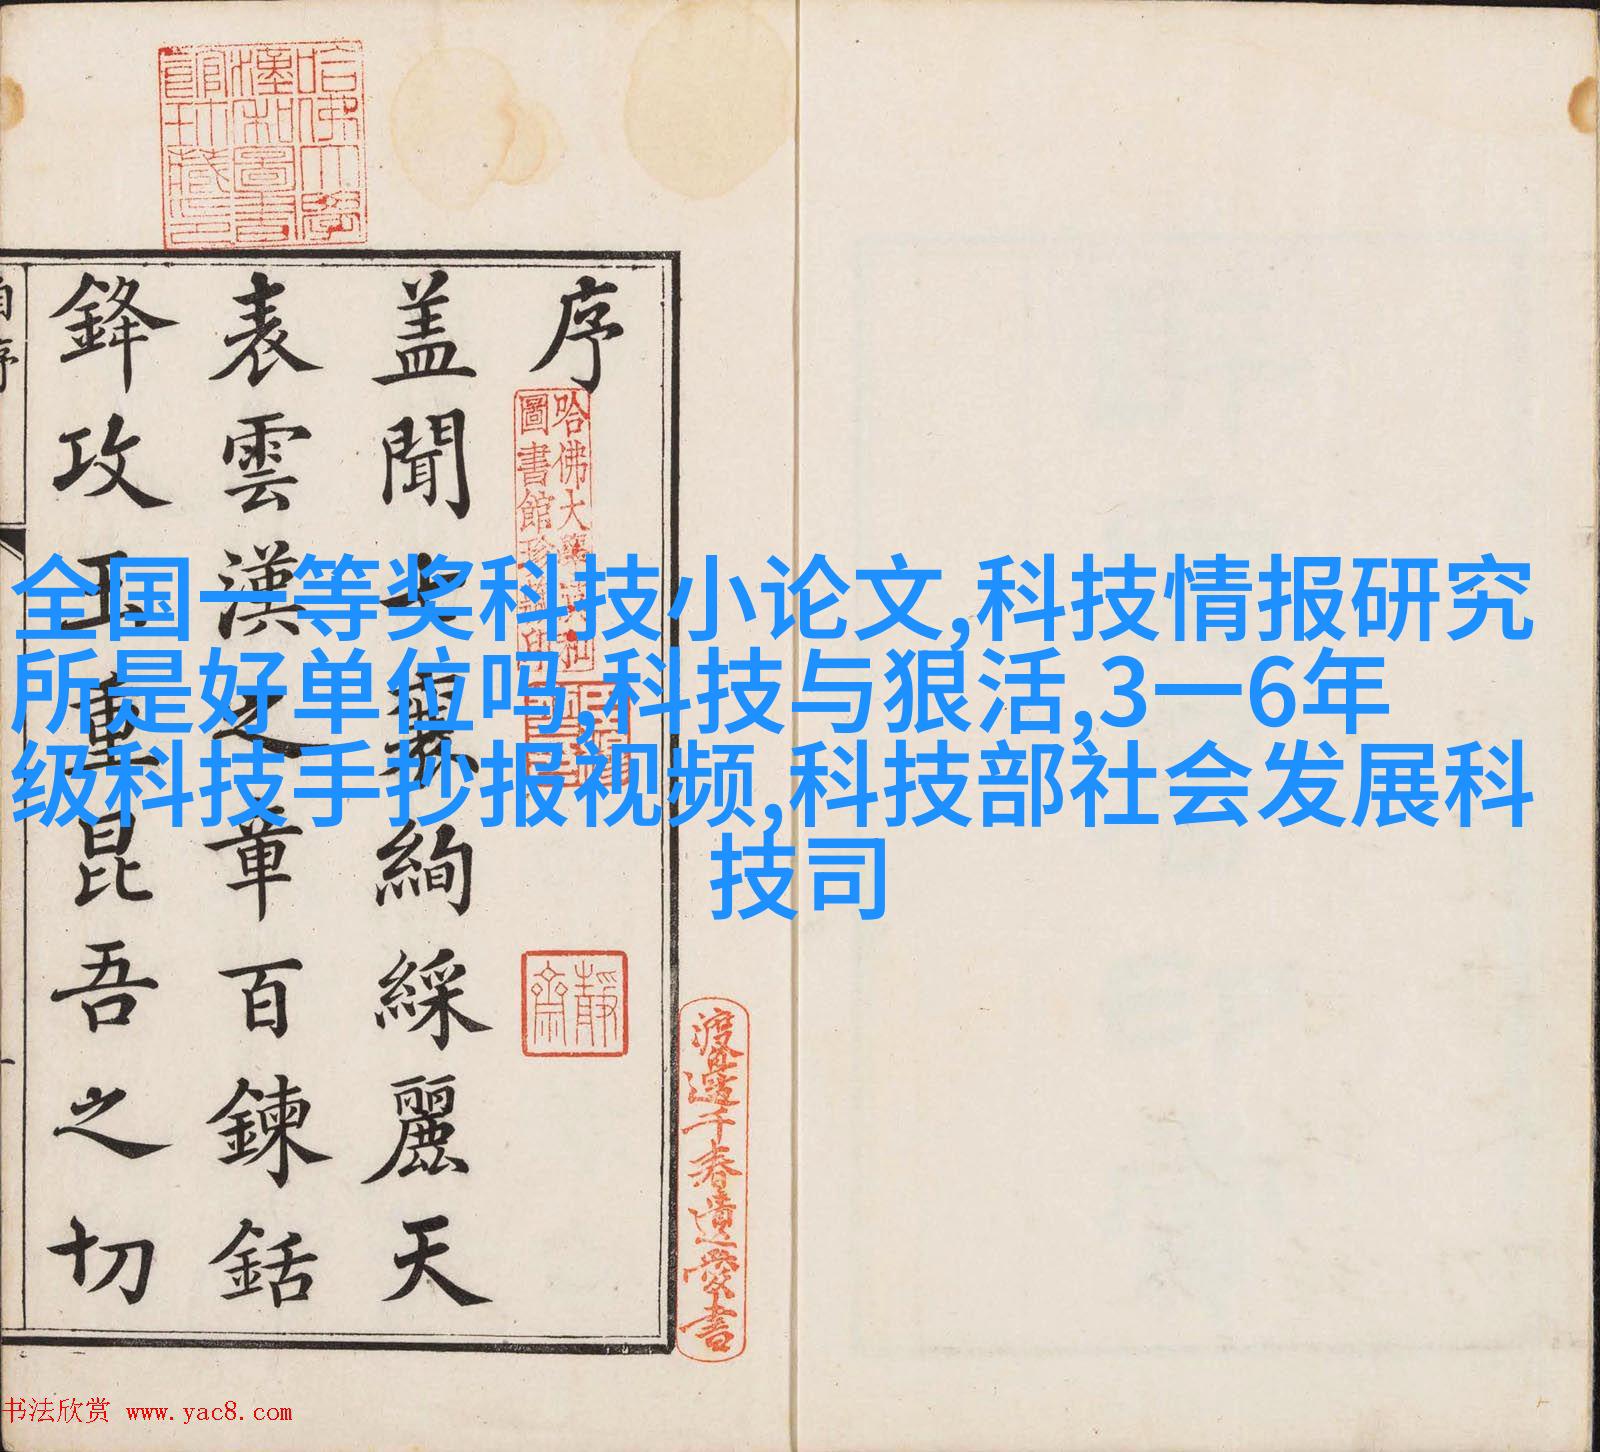 全国一等奖科技小论文,科技情报研究
所是好单位吗,科技与狠活,3一6年
级科技手抄报视频,科技部社会发展科
技司
序
蓋聞七襄絢綵麗天
表雲漢之章百鍊銛
鋒攻玉重昆吾之切
自序
哈佛大學
漢和圖書
館珍藏印
哈佛大學漢和
圖書館珍藏印
靜齋
渡邊千春遺愛書
书法欣赏 www.yac8.com